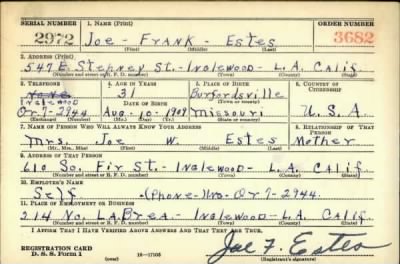 SERIAL NUMBER 1. NAME (Print) ORDER NUMBER
2972 Joe - FRANK - Estes 3682
(First) (Middle) (Last)
2. ADDRESS (Print)
547 E. Stepney St. - Inglewood - L.A. Calif.
(Number and street or R. F. D. number) (Town) (County) (State)
3. TELEPHONE 4. AGE IN YEARS 5. PLACE OF BIRTH 6. COUNTRY OF CITIZENSHIP
None 31 Burfordsville
Inglewood DATE OF BIRTH (Town or county)
Or 7-2944 Aug.-10-1909 Missouri U.S.A.
(Exchange) (Number) (Mo.) (Day) (Yr.) (State or country)
7. NAME OF PERSON WHO WILL ALWAYS KNOW YOUR ADDRESS 8. RELATIONSHIP OF THAT PERSON
Mrs. Joe W. Estes Mother
(Mr., Mrs., Miss) (First) (Middle) (Last)
9. ADDRESS OF THAT PERSON
610 So. Fir St. - Inglewood - L.A. Calif.
(Number and street or R. F. D. number) (Town) (County) (State)
10. EMPLOYER'S NAME
Self - (Phone-) No. Or 7-2944.
11. PLACE OF EMPLOYMENT OR BUSINESS
214 No. LABrea. - Inglewood - L.A. Calif.
(Number and street or R. F. D. number) (Town) (County) (State)
I AFFIRM THAT I HAVE VERIFIED ABOVE ANSWERS AND THAT THEY ARE TRUE.
REGISTRATION CARD
D. S. S. Form 1 16-17105 Joe F. Estes
(Registrant's signature)